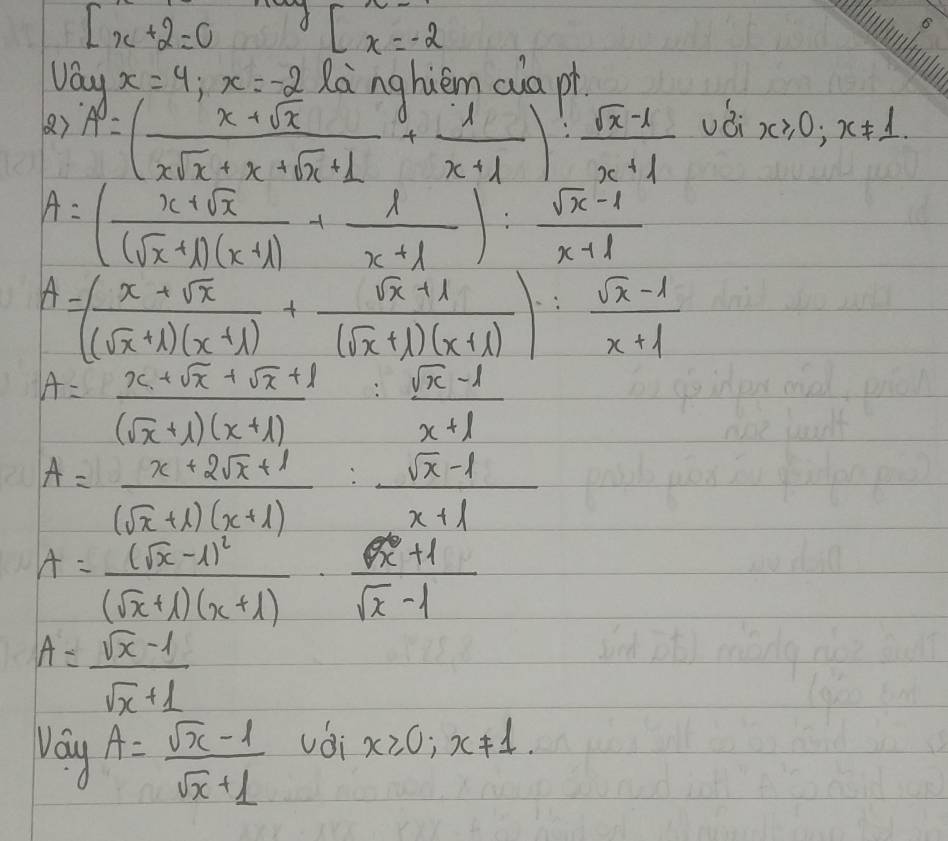 [ x+2=0 hay [ x=-2
Vậy x = 4; x = -2 là nghiệm của pt.
2) A = ( (x+√x)/(x√x + x + √x + 1) + 1/(x+1) ) : (√x-1)/(x+1) với x≥0; x≠1.
A = ( (x+√x)/((√x+1)(x+1)) + 1/(x+1) ) : (√x-1)/(x+1)
A = ( (x+√x)/((√x+1)(x+1)) + (√x+1)/((√x+1)(x+1)) ) : (√x-1)/(x+1)
A = (x+√x+√x+1)/((√x+1)(x+1)) : (√x-1)/(x+1)
A = (x+2√x+1)/((√x+1)(x+1)) : (√x-1)/(x+1)
A = (√x-1)²/((√x+1)(x+1)) . (x+1)/(√x-1)
A = (√x-1)/(√x+1)
Vậy A = (√x-1)/(√x+1) với x≥0; x≠1.